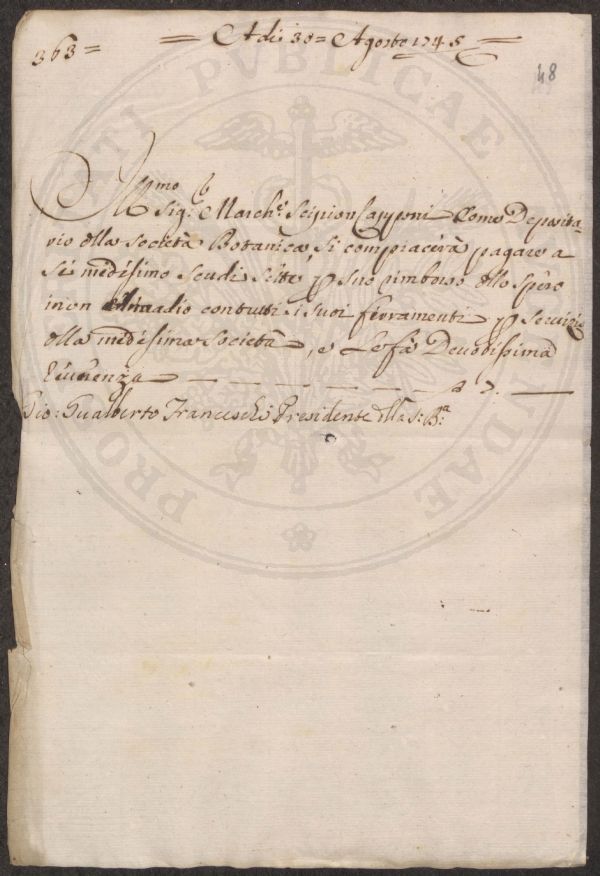 363 =
= Adi 30 = Agosto 1745 =
48
Ill.mo
Sig.e March.e Scipion Capponi Come Deposita-
rio dlla Società Botanica, Si compiacerà pagare a
Si medesimo Scudi Sette, p suo rimborso dllo speso
in un con tutti i suoi ferramenti p servizio
dlla medesima Società, e Le fà Devotissima
Riverenza — — — — — — — 7. —
Gio: Gualberto Franceschi Presidente dlla S: B:a
PRO PUBLICAE